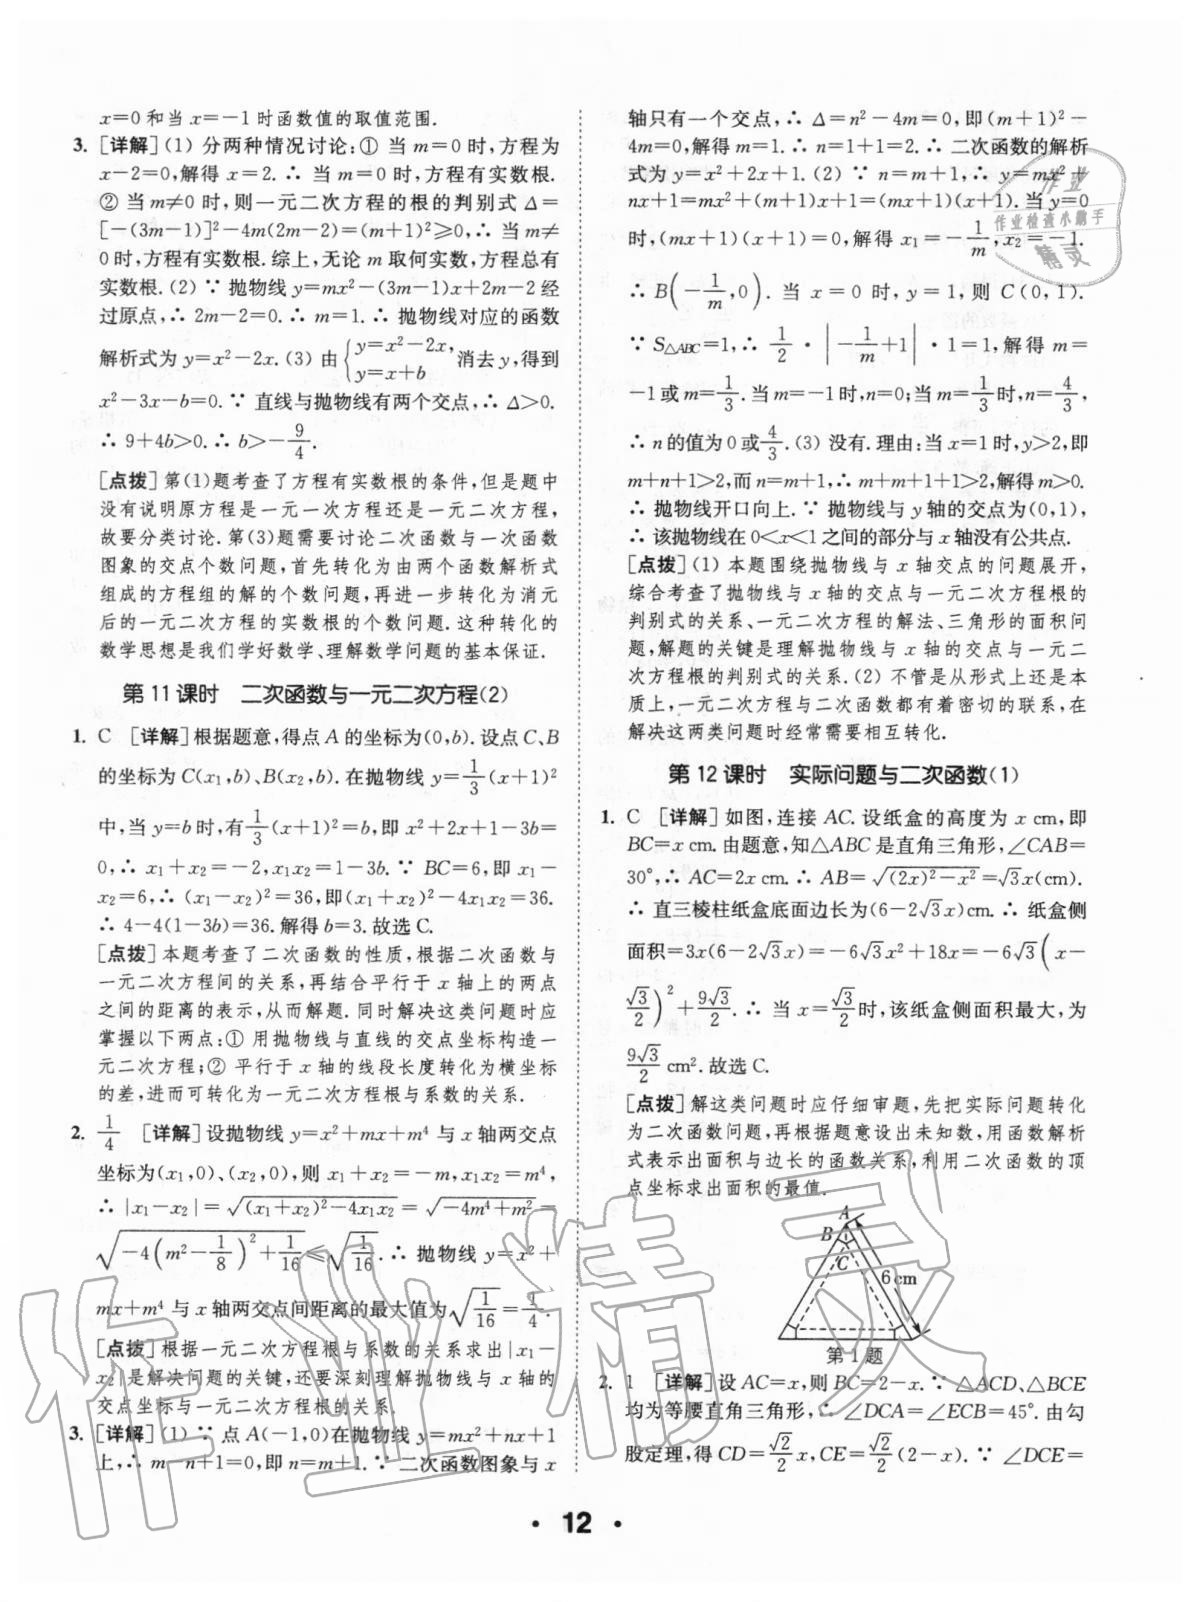 x=0和当 x=-1时函数值的取值范围.
3. [详解](1) 分两种情况讨论:① 当 m=0时,方程为
x-2=0,解得 x=2.∴ 当 m=0时,方程有实数根.
② 当 m≠0时,则一元二次方程的根的判别式 Δ=
[-(3m-1)]²-4m(2m-2)=(m+1)²≥0,∴ 当 m≠
0时,方程有实数根.综上,无论 m 取何实数,方程总有
实数根.(2) ∵ 抛物线 y=mx²-(3m-1)x+2m-2经
过原点,∴ 2m-2=0.∴ m=1.∴ 抛物线对应的函数
解析式为 y=x²-2x.(3) 由{y=x²-2x, y=x+b 消去 y,得到
x²-3x-b=0.∵ 直线与抛物线有两个交点,∴ Δ>0.
∴ 9+4b>0.∴ b>-9/4.
[点拨]第(1)题考查了方程有实数根的条件,但是题中
没有说明原方程是一元一次方程还是一元二次方程,
故要分类讨论.第(3)题需要讨论二次函数与一次函数
图象的交点个数问题,首先转化为由两个函数解析式
组成的方程组的解的个数问题,再进一步转化为消元
后的一元二次方程的实数根的个数问题.这种转化的
数学思想是我们学好数学、理解数学问题的基本保证.
第11课时 二次函数与一元二次方程(2)
1. C [详解]根据题意,得点 A 的坐标为(0,b).设点 C、B
的坐标为 C(x₁,b)、B(x₂,b).在抛物线 y=1/3(x+1)²
中,当 y=b时,有1/3(x+1)²=b,即 x²+2x+1-3b=
0,∴ x₁+x₂=-2,x₁x₂=1-3b.∵ BC=6,即 x₁-
x₂=6,∴ (x₁-x₂)²=36,即(x₁+x₂)²-4x₁x₂=36.
∴ 4-4(1-3b)=36.解得 b=3.故选C.
[点拨]本题考查了二次函数的性质,根据二次函数与
一元二次方程间的关系,再结合平行于 x 轴上的两点
之间的距离的表示,从而解题.同时解决这类问题时应
掌握以下两点:① 用抛物线与直线的交点坐标构造一
元二次方程;② 平行于 x 轴的线段长度转化为横坐标
的差,进而可转化为一元二次方程根与系数的关系.
2. 1/4 [详解]设抛物线 y=x²+mx+m⁴ 与 x 轴两交点
坐标为(x₁,0)、(x₂,0),则 x₁+x₂=-m,x₁x₂=m⁴,
∴ |x₁-x₂|=√((x₁+x₂)²-4x₁x₂)=√(-4m⁴+m²)=
√(-4(m²-1/8)²+1/16)≤√(1/16).∴ 抛物线 y=x²+
mx+m⁴ 与 x 轴两交点间距离的最大值为√(1/16)=1/4.
[点拨]根据一元二次方程根与系数的关系求出|x₁-
x₂|是解决问题的关键,还要深刻理解抛物线与 x 轴的
交点坐标与一元二次方程根的关系.
3. [详解](1) ∵ 点 A(-1,0)在抛物线 y=mx²+nx+1
上,∴ m-n+1=0,即 n=m+1.∵ 二次函数图象与 x
轴只有一个交点,∴ Δ=n²-4m=0,即(m+1)²-
4m=0,解得 m=1.∴ n=1+1=2.∴ 二次函数的解析
式为 y=x²+2x+1.(2) ∵ n=m+1,∴ y=mx²+
nx+1=mx²+(m+1)x+1=(mx+1)(x+1).当 y=0
时,(mx+1)(x+1)=0,解得 x₁=-1/m,x₂=-1.
∴ B(-1/m,0).当 x=0时,y=1,则 C(0,1).
∵ S△ABC=1,∴ 1/2·|-1/m+1|·1=1,解得 m=
-1或 m=1/3.当 m=-1时,n=0;当 m=1/3时,n=4/3,
∴ n 的值为0或4/3.(3) 没有.理由:当 x=1时,y>2,即
m+n+1>2,而 n=m+1,∴ m+m+1+1>2,解得 m>0.
∴ 抛物线开口向上.∵ 抛物线与 y 轴的交点为(0,1),
∴ 该抛物线在 0<x<1之间的部分与 x 轴没有公共点.
[点拨](1) 本题围绕抛物线与 x 轴交点的问题展开,
综合考查了抛物线与 x 轴的交点与一元二次方程根的
判别式的关系、一元二次方程的解法、三角形的面积问
题,解题的关键是理解抛物线与 x 轴的关系与一元二
次方程根的判别式的关系.(2) 不管是从形式上还是本
质上,一元二次方程与二次函数都有着密切的联系,在
解决这两类问题时经常需要相互转化.
第12课时 实际问题与二次函数(1)
1. C [详解]如图,连接 AC.设纸盒的高度为 x cm,即
BC=x cm.由题意,知△ABC 是直角三角形,∠CAB=
30°,∴ AC=2x cm.∴ AB=√((2x)²-x²)=√3x(cm).
∴ 直三棱柱纸盒底面边长为(6-2√3x)cm.∴ 纸盒侧
面积=3x(6-2√3x)=-6√3x²+18x=-6√3(x-
√3/2)²+9√3/2.∴ 当 x=√3/2时,该纸盒侧面积最大,为
9√3/2 cm².故选C.
[点拨]解这类问题时应仔细审题,先把实际问题转化
为二次函数问题,再根据题意设出未知数,用函数解析
式表示出面积与边长的函数关系,利用二次函数的顶
点坐标求出面积的最值.
A
B
C
6 cm
第1题
2. 1 [详解]设 AC=x,则 BC=2-x.∵ △ACD、△BCE
均为等腰直角三角形,∴ ∠DCA=∠ECB=45°.由勾
股定理,得 CD=√2/2 x,CE=√2/2(2-x).∵ ∠DCE=
· 12 ·
作业
作业检查小助手
精灵
作业精灵